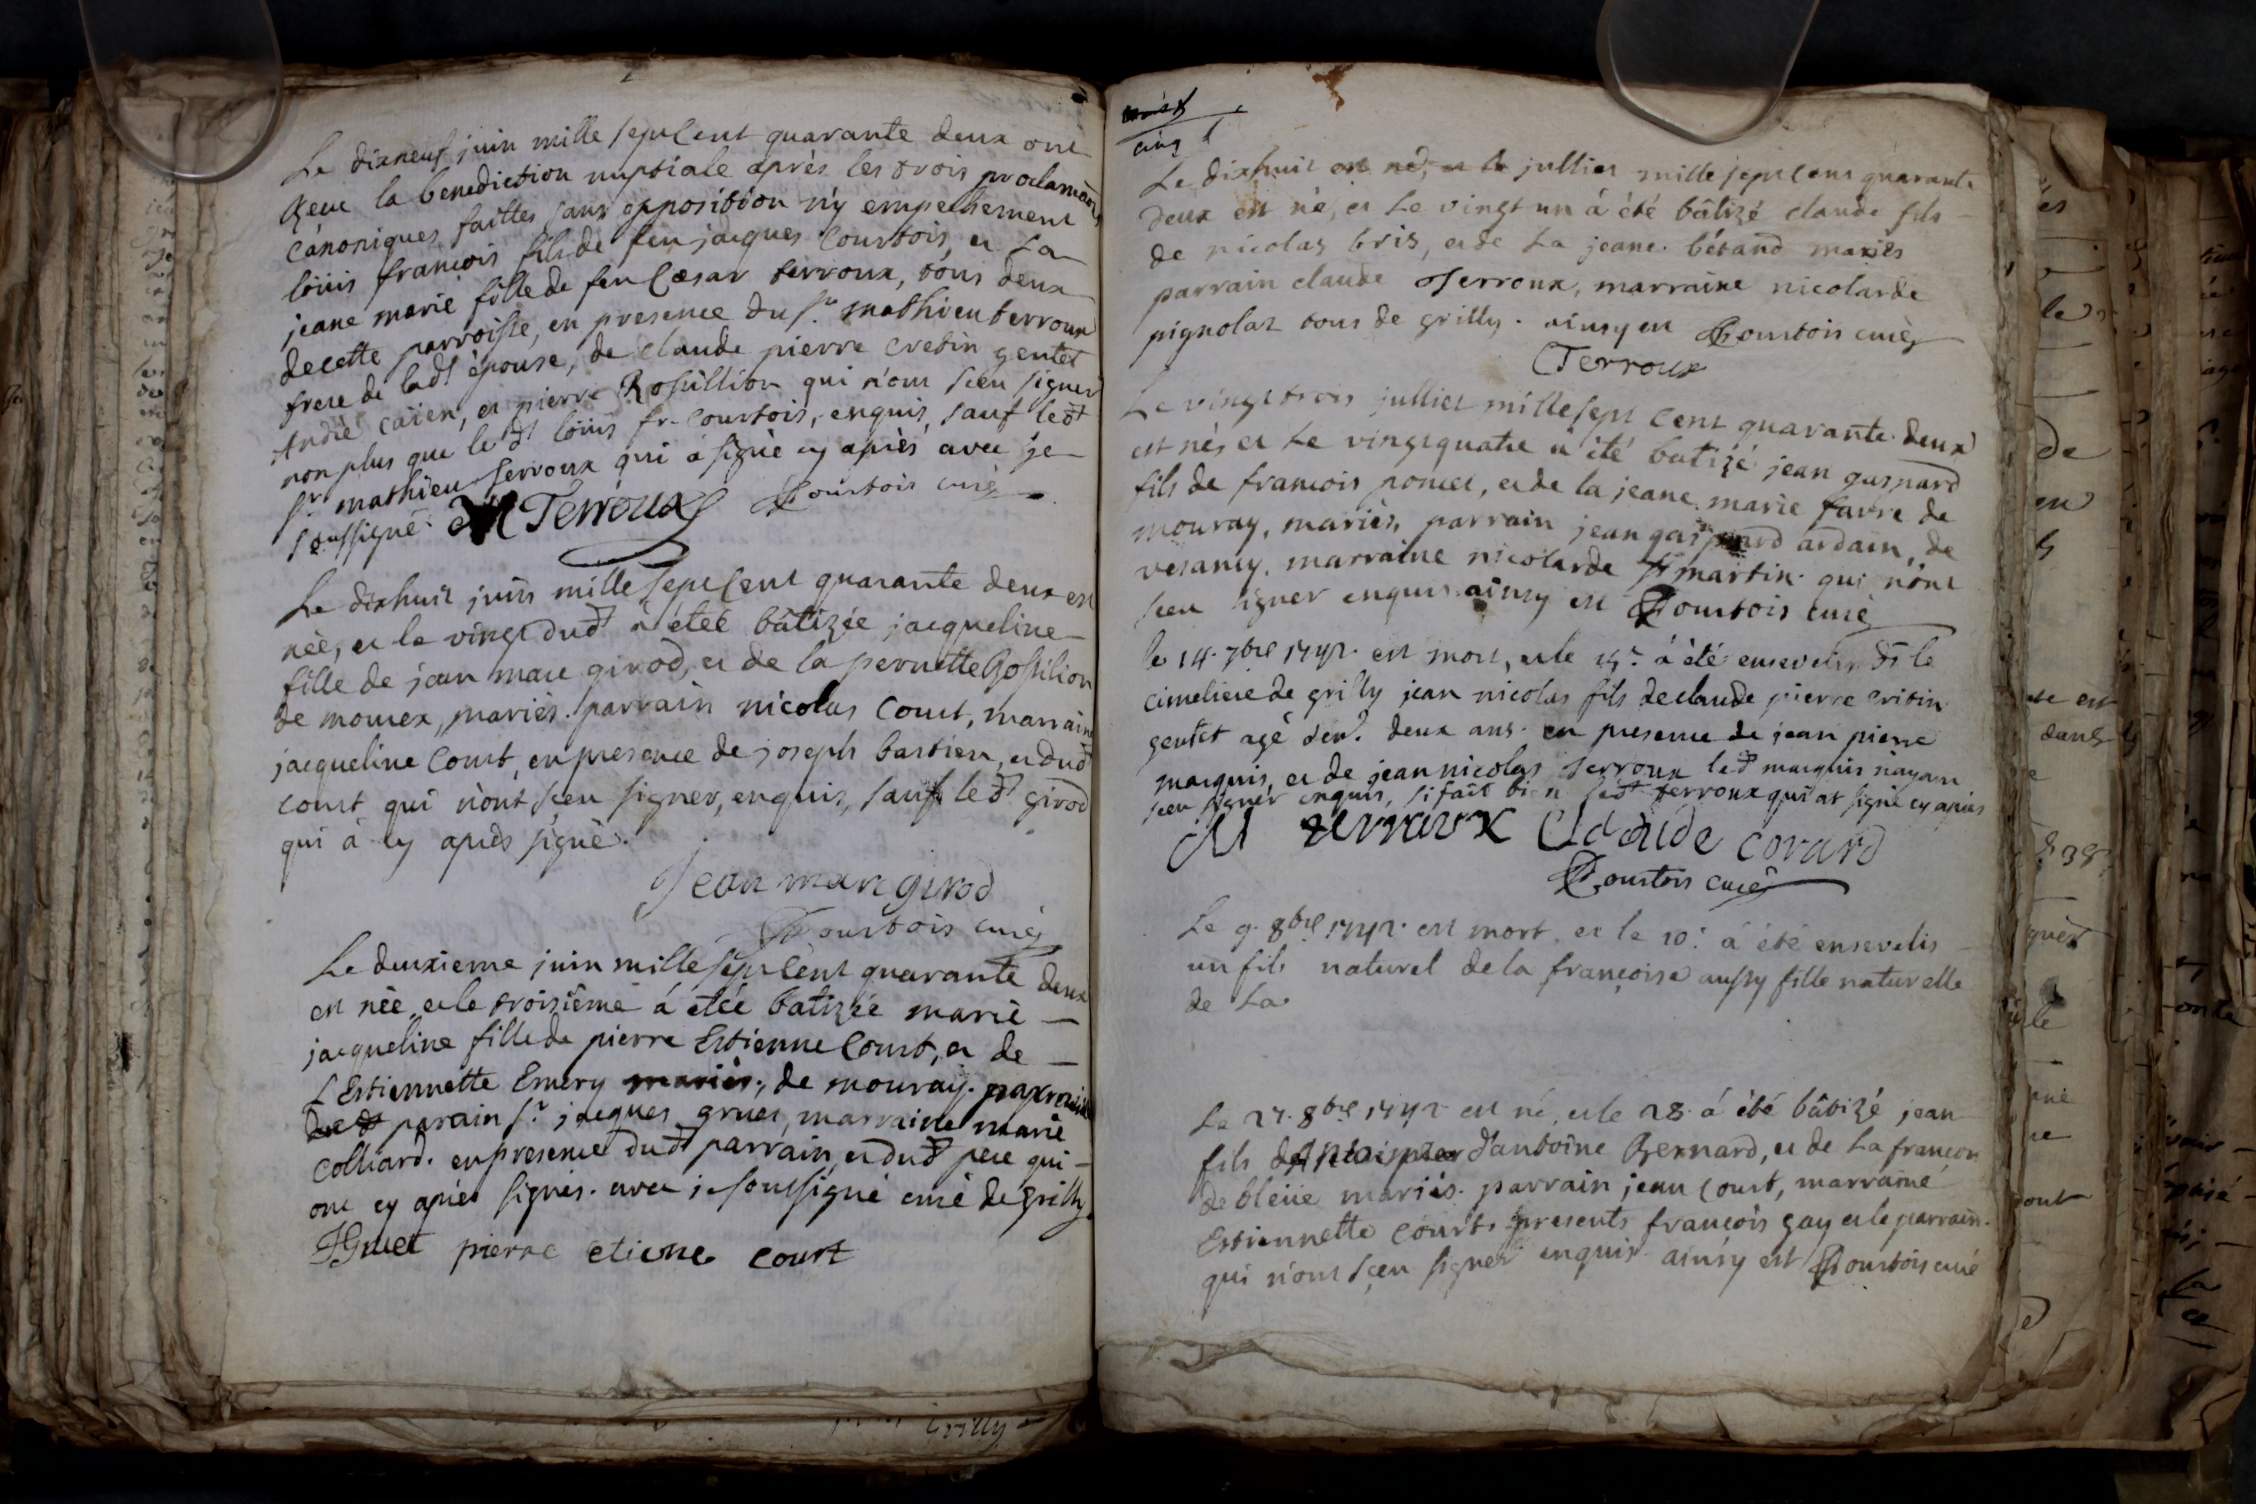 Le dixneuf juin mille sept cent quarante deux ont
Reçu la benediction nuptiale après les trois proclamaons
canoniques faittes sans opposition n'y empechement
loüis françois fils de feu jacques Courtois, et La
jeane marie fille de feu Cæsar terroux, tous deux
de cette parroisse, en presence du sr. mathieu terroux
frere de lad.t épouse, de claude pierre cretin gentet
André caïen, et pierre Rossillion qui n'ont sceu signer
non plus que led.t loüis fr. Courtois, enquis, sauf led.t
sr. mathieu terroux qui a signé cy après avec je
soussigné. M Terroux Courtois curé
Le dixhuit juin mille sept cent quarante deux est
née, et le vingt dud.t a étéé bâtizée jacqueline
fille de jean marc girod, et de la pernette Rossilion
de mourex, mariés. parrain nicolas Court, marraine
jacqueline Court, en presence de joseph bastien, et dud.t
court qui n'ont sceu signer, enquis, sauf le d.t girod
qui à cy après signé.
Jean marc girod
Courtois curé
Le deuxieme juin mille sept cent quarante deux
est née et le troisiéme á étéé batizée marie
jacqueline fille de pierre Estienne Court, et de
L'Estiennette Emery mariés, de mouray. parraine
parain sr. jacques gruet, marraine marie
Colliard. en presence dud.t parrain et dud.t pere qui
ont cy après signés. avec je soussigné curé de grilly
JGruet pierre etiene court
cinq
Le dixhuit est né, et le jullier mille sept cent quarante
deux est né, et Le vingt un á été bâtizé claude fils
de nicolas bris, et de La jeane bétand mariés
parrain claude Terroux, marraine nicolarde
pignolat tous de grilly. ainsy est Courtois curé
CTerroux
Le vingt trois julliet mille sept cent quarante deux
est nés et Le vingtquatre a été batizé jean gaspard
fils de francois poncet, et de la jeane marie favre de
mouray, mariés, parrain jean gaspard ardain, de
vesancy, marraine nicolarde st martin. qui n'ont
sceu signer enquis. ainsy est Courtois curé
le 14. 7bre 1742. est mort, et le 15e. á été enseveli dt le
cimetiere de grilly jean nicolas fils de claude pierre critin
gentet agé d'env. deux ans. en presence de jean pierre
marquis, et de jean nicolas terroux led.t marquis n'ayant
sceu signer enquis, si fait bien led.t terroux qui at signé cy après
M terraux Claude covard
Courtois curé
Le 9. 8bre 1742. est mort, et le 10e. á été ensevelis
un fils naturel de la françoise aussy fille naturelle
de La
Le 27. 8bre 1742 est né, et le 28. á été bâtizé jean
fils d'antoine Bernard, et de La françoise
de bleüe mariés. parrain jean Court, marraine
Estiennette Court. presents françois gay et le parrain.
qui n'ont sçeu signer enquis. ainsy est Courtois curé